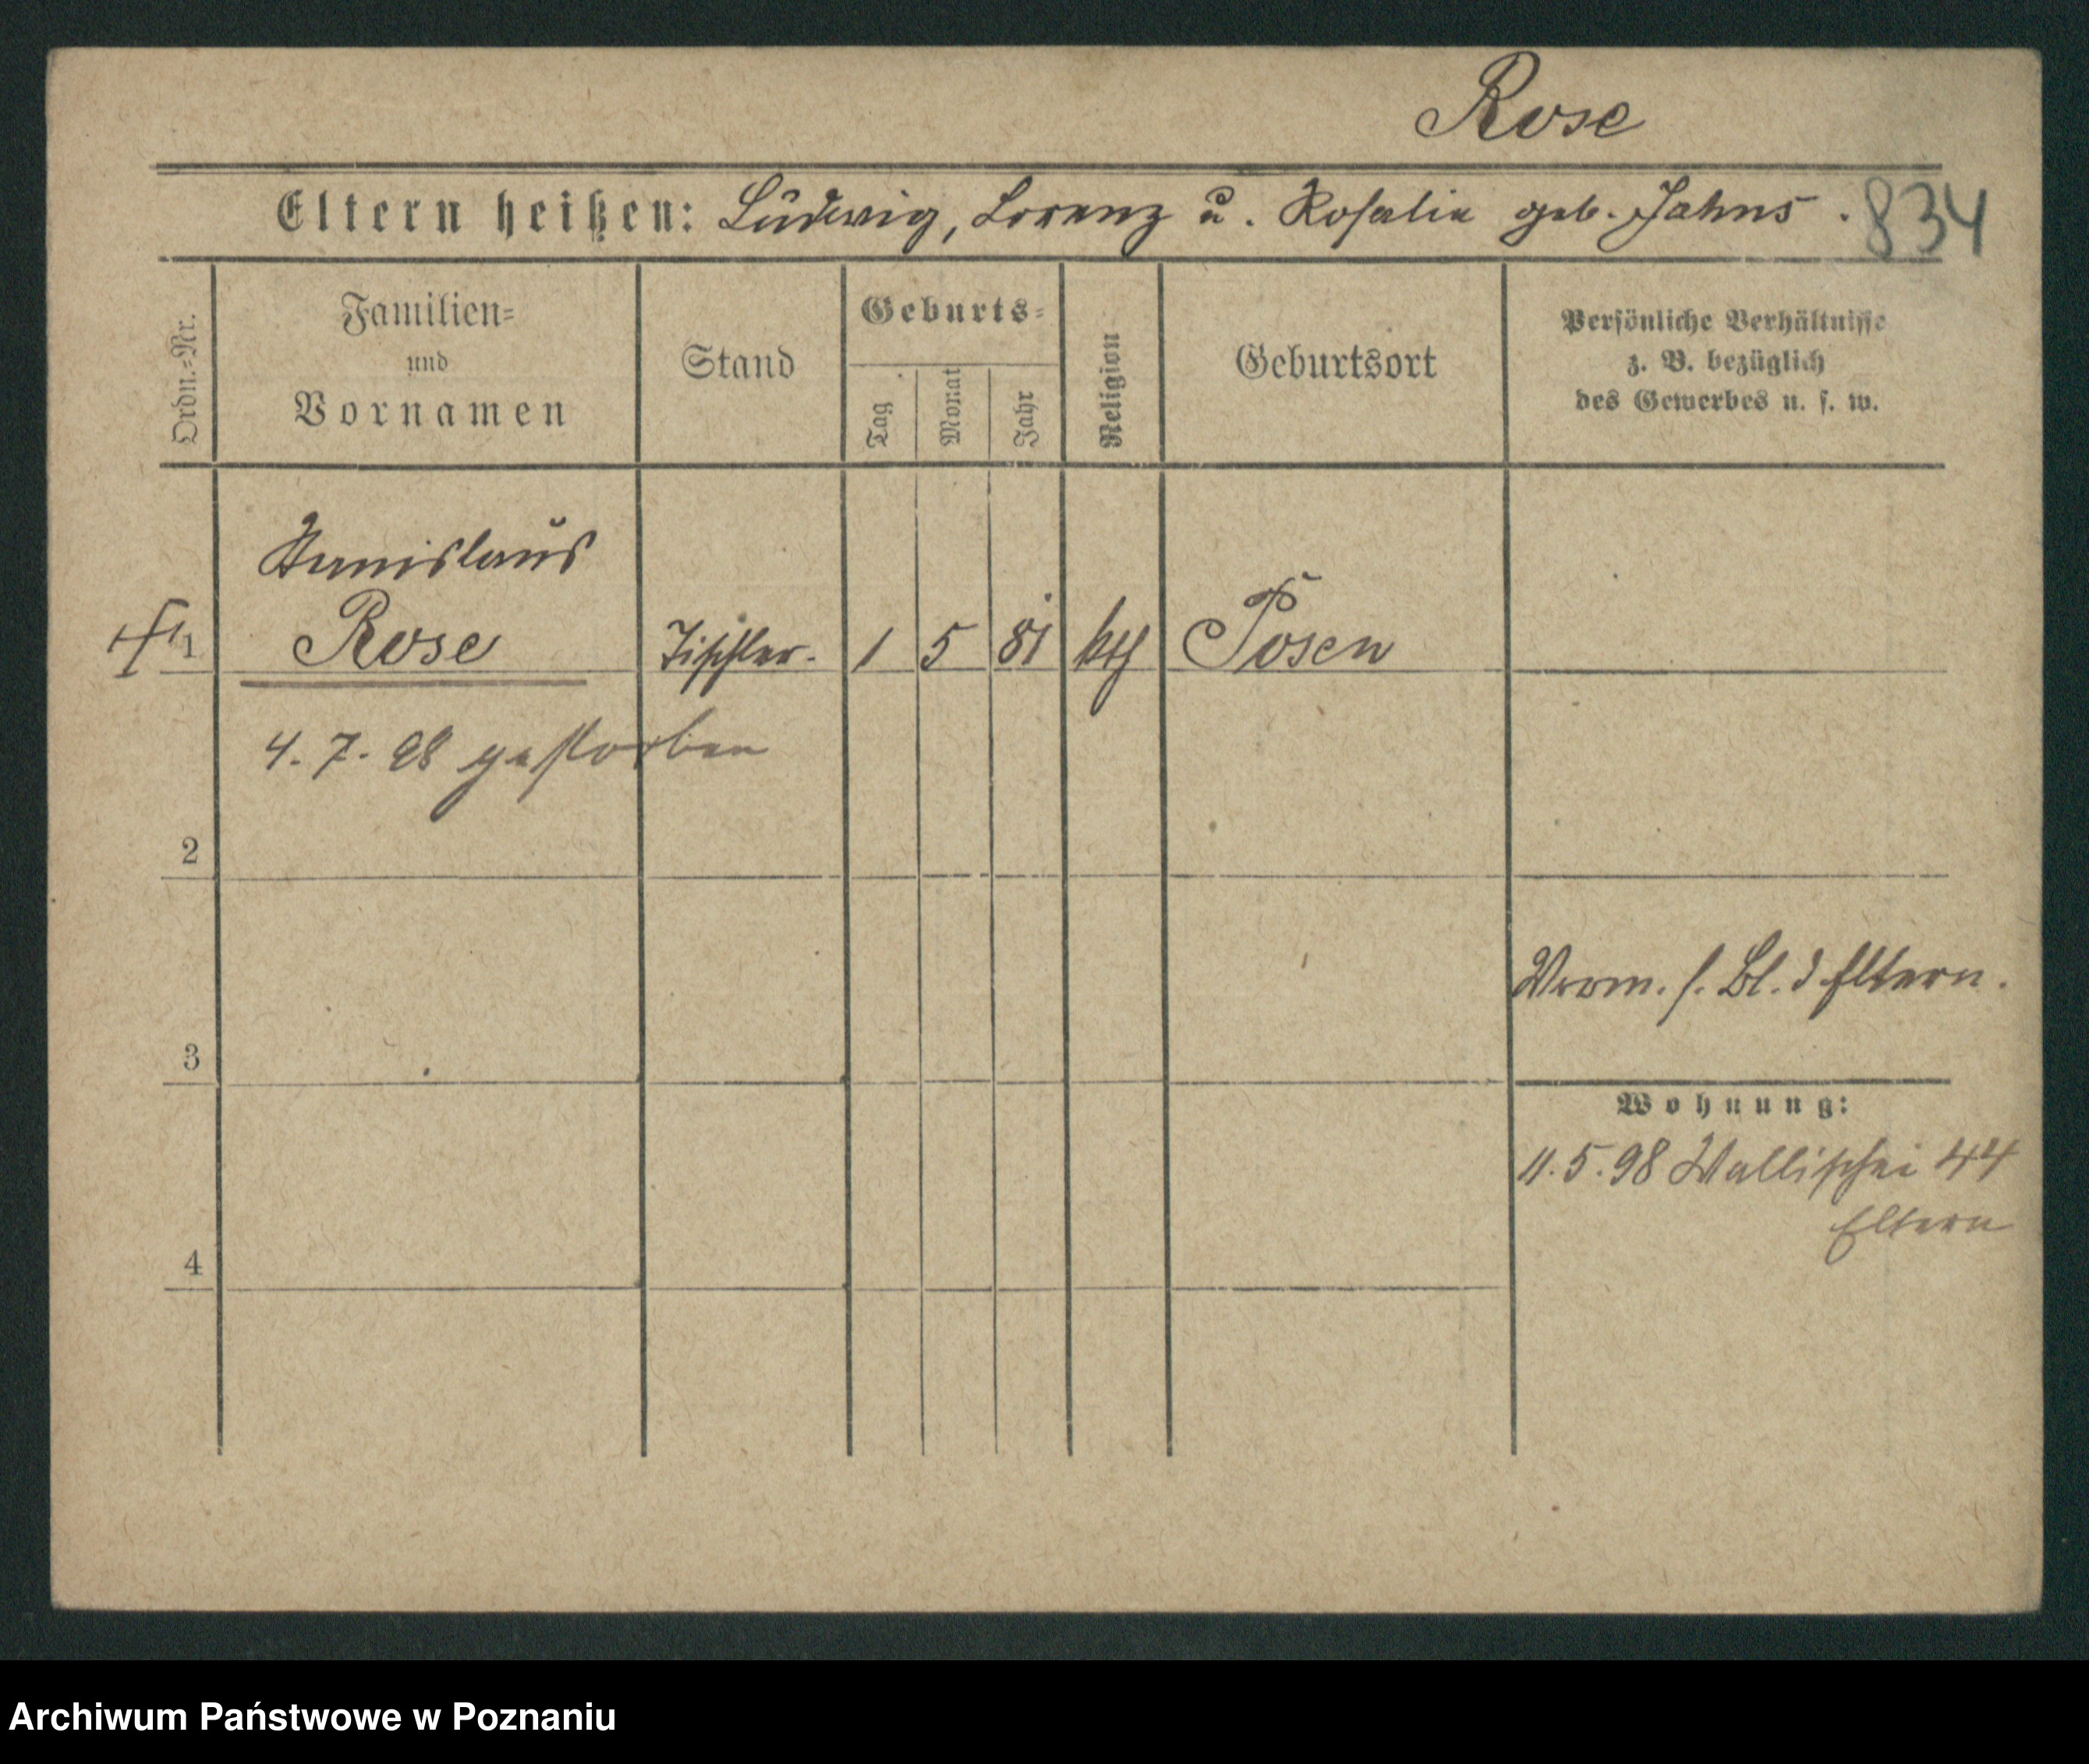 Rose
Eltern heißen: Ludwig, Lorenz u. Rosalie geb. Jahns.
834
Ordn.=Nr.
Familien=
und
Vornamen
Stand
Geburts=
Tag
Monat
Jahr
Religion
Geburtsort
Persönliche Verhältnisse
z. B. bezüglich
des Gewerbes u. s. w.
Stanislaus
1 Rose Tischler. 1 5 81 kth Posen
4. 7. 98 gestorben
2
Verm. s. Bl. d Eltern.
3
Wohnung:
11. 5. 98 Wallischei 44
Eltern
4
Archiwum Państwowe w Poznaniu